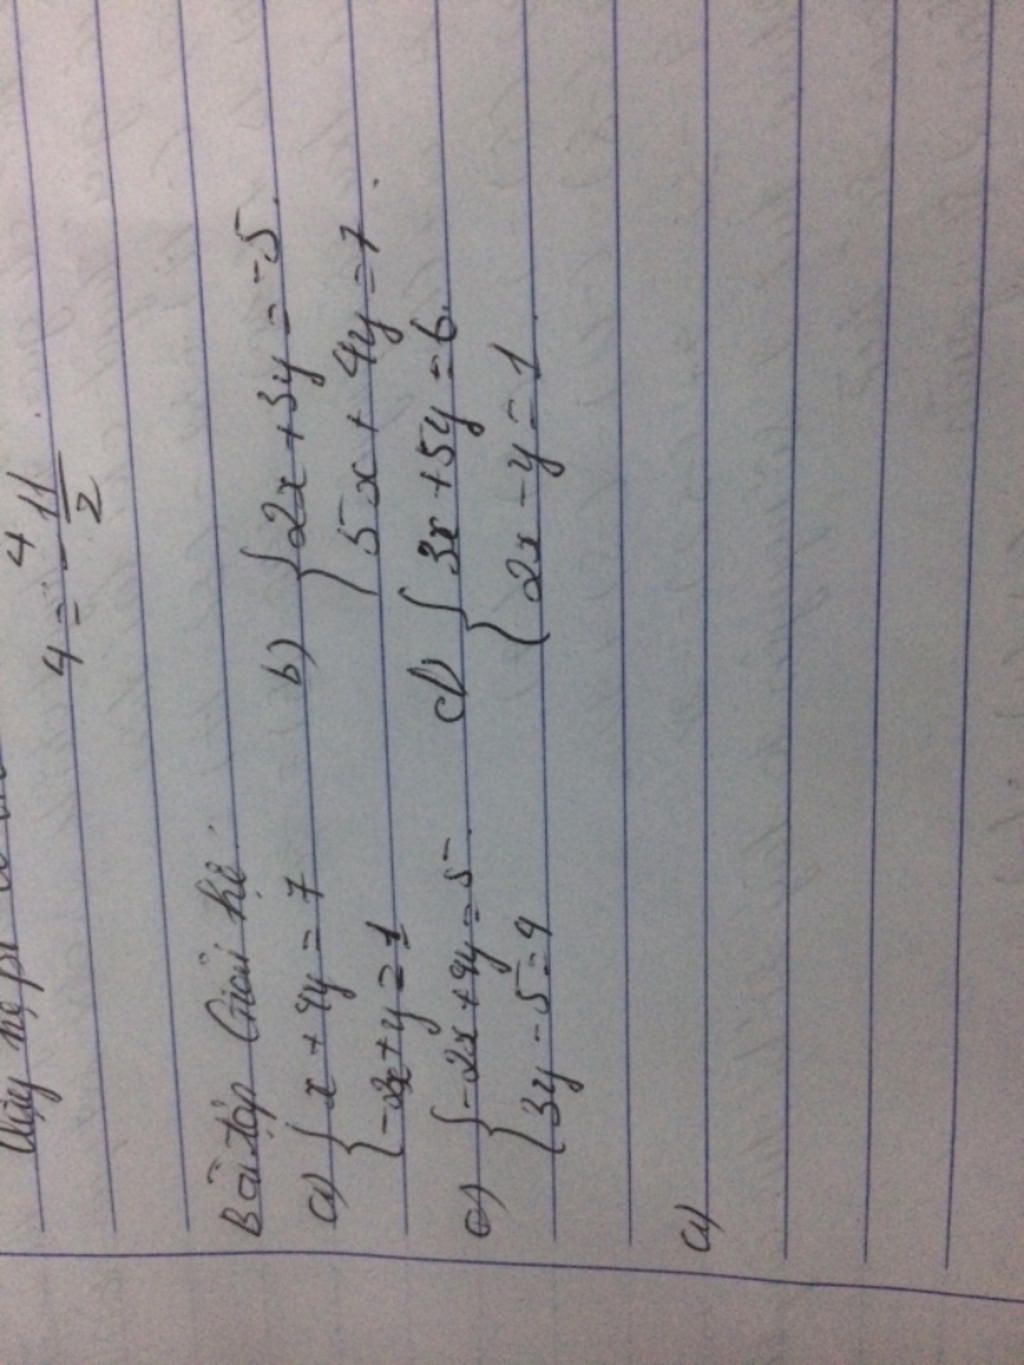 4
4 = - 11/2
Bài tập Giải hệ.
a) { x + 4y = 7
{ -2x + y = 1
b) { 2x + 3y = -5.
{ 5x + 4y = 7.
c) { -2x + 4y = 5.
{ 3y - 5 = 9
d) { 3x + 5y = 6.
{ 2x - y = 1.
a)